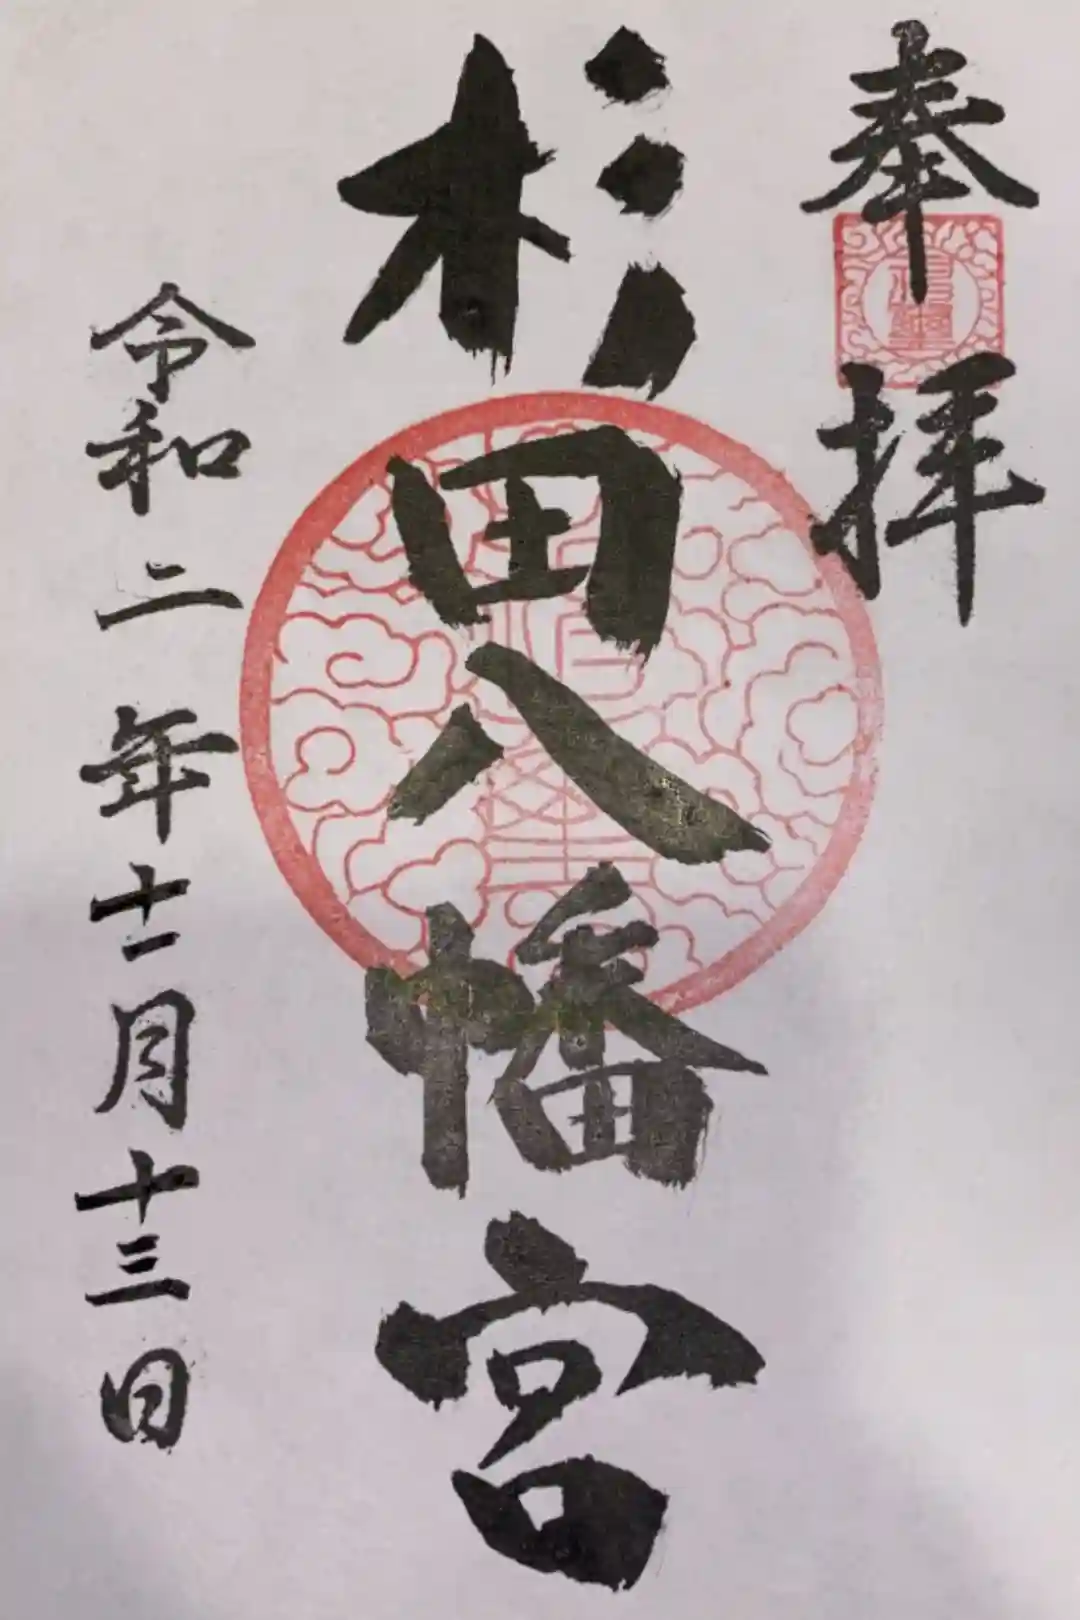 奉拝
杉田八幡宮
令和二年十一月十三日